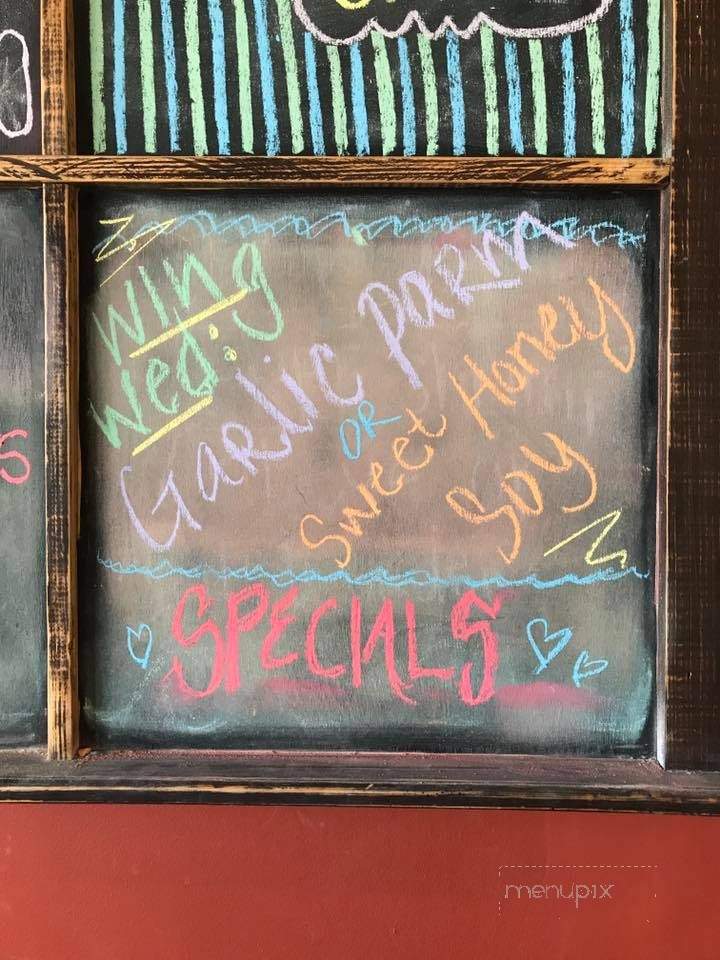 Wing
Wed:
Garlic Parm
OR
Sweet Honey
Soy
SPECIALS
menupix